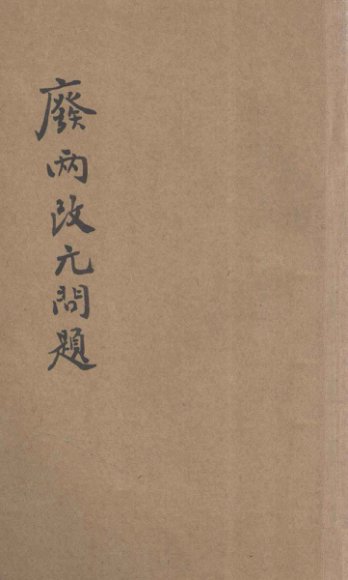 廢两改元問題